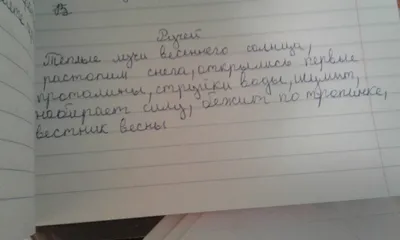 Ручей
Тёплые лучи весеннего солнца,
растопили снега, открылись первые
проталины, струйки воды, шумит,
набирает силу, бежит по тропинке,
вестник весны